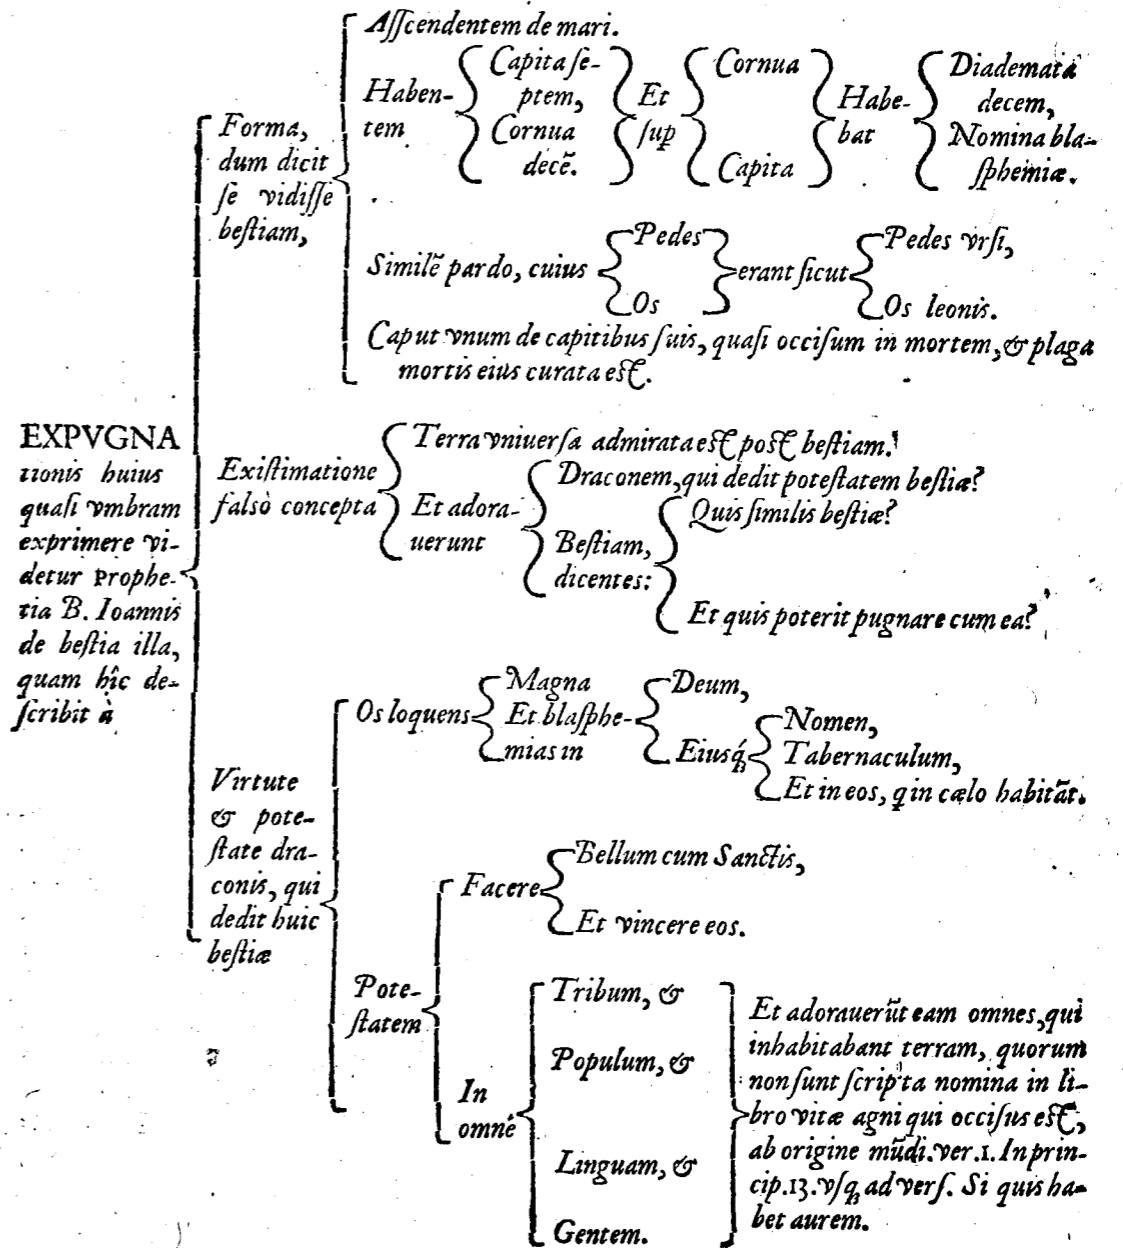 EXPVGNA
tionis huius
quasi vmbram
exprimere vi-
detur Prophe-
tia B. Ioannis
de bestia illa,
quam hîc de-
scribit à
Forma,
dum dicit
se vidisse
bestiam,
Asscendentem de mari.
Haben-
tem
Capita se-
ptem,
Cornua
decẽ.
Et
sup
Cornua
Capita
Habe-
bat
Diademata
decem,
Nomina bla-
sphemiæ.
Similẽ pardo, cuius
Pedes
Os
erant sicut
Pedes vrsi,
Os leonis.
Caput vnum de capitibus suis, quasi occisum in mortem, & plaga
mortis eius curata est.
Existimatione
falsò concepta
Terra vniuersa admirata est post bestiam.
Et adora-
uerunt
Draconem, qui dedit potestatem bestiæ?
Bestiam,
dicentes:
Quis similis bestiæ?
Et quis poterit pugnare cum ea?
Virtute
& pote-
state dra-
conis, qui
dedit huic
bestiæ
Os loquens
Magna
Et blasphe-
mias in
Deum,
Eiusq́;
Nomen,
Tabernaculum,
Et in eos, q in cælo habitãt.
Pote-
statem
Facere
Bellum cum Sanctis,
Et vincere eos.
In
omné
Tribum, &
Populum, &
Linguam, &
Gentem.
Et adorauerũt eam omnes, qui
inhabitabant terram, quorum
non sunt scripta nomina in li-
bro vitæ agni qui occisus est,
ab origine mũdi. ver. 1. In prin-
cip. 13. vsq; ad vers. Si quis ha-
bet aurem.